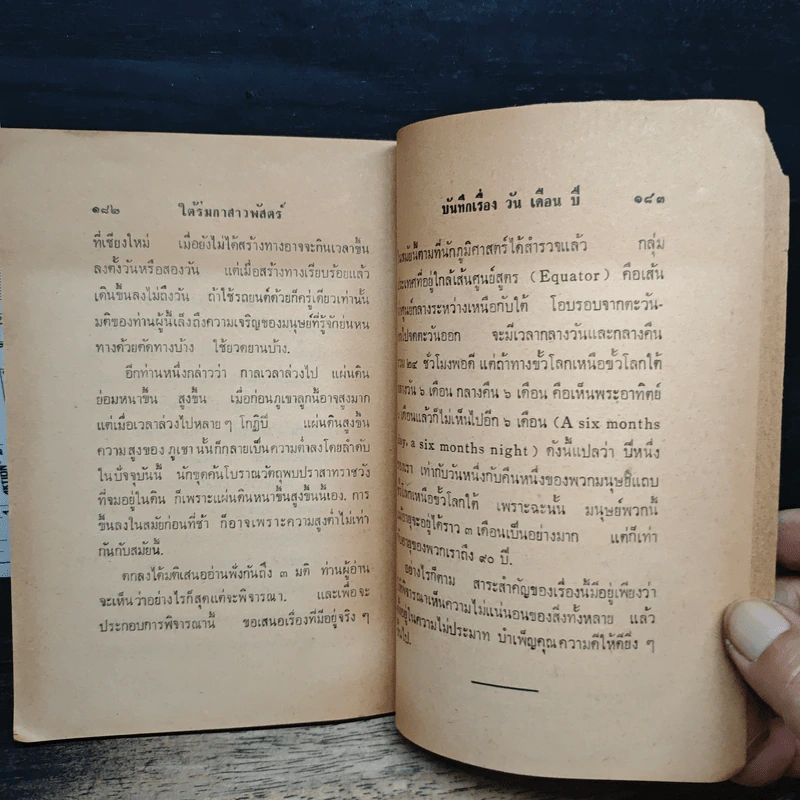 ๑๘๒ ใต้ร่มกาสาวพัสตร์
ที่เชียงใหม่ เมื่อยังไม่ได้สร้างทางอาจจะกินเวลาขึ้น
ลงตั้งวันหรือสองวัน แต่เมื่อสร้างทางเรียบร้อยแล้ว
เดินขึ้นลงไม่ถึงวัน ถ้าใช้รถยนต์ด้วยก็ครู่เดียวเท่านั้น
มติของท่านผู้นี้เล็งถึงความเจริญของมนุษย์ที่รู้จักย่นหน
ทางด้วยตัดทางบ้าง ใช้ยวดยานบ้าง.
อีกท่านหนึ่งกล่าวว่า กาลเวลาล่วงไป แผ่นดิน
ย่อมหนาขึ้น สูงขึ้น เมื่อก่อนภูเขาลูกนี้อาจสูงมาก
แต่เมื่อเวลาล่วงไปหลาย ๆ โกฏิปี แผ่นดินสูงขึ้น
ความสูงของ ภูเขา นั้นก็กลายเป็นความต่ำลงโดยลำดับ
ในปัจจุบันนี้ นักขุดค้นโบราณวัตถุพบปราสาทราชวัง
ที่จมอยู่ในดิน ก็เพราะแผ่นดินหนาขึ้นสูงขึ้นนี้เอง. การ
ขึ้นลงในสมัยก่อนที่ช้า ก็อาจเพราะความสูงต่ำไม่เท่า
กันกับสมัยนี้.
ตกลงได้มติเสนออ่านฟังกันถึง ๓ มติ ท่านผู้อ่าน
จะเห็นว่าอย่างไรก็สุดแต่จะพิจารณา. และเพื่อจะ
ประกอบการพิจารณานี้ ขอเสนอเรื่องที่มีอยู่จริง ๆ
บันทึกเรื่อง วัน เดือน ปี ๑๘๓
ตามที่นักภูมิศาสตร์ได้สำรวจแล้ว กลุ่ม
ประเทศที่อยู่ใกล้เส้นศูนย์สูตร (Equator) คือเส้น
ศูนย์กลางระหว่างเหนือกับใต้ โอบรอบจากตะวัน-
ตะวันออก จะมีเวลากลางวันและกลางคืน
๒๔ ชั่วโมงพอดี แต่ถ้าทางขั้วโลกเหนือขั้วโลกใต้
๖ เดือน กลางคืน ๖ เดือน คือเห็นพระอาทิตย์
เดือนแล้วก็ไม่เห็นไปอีก ๖ เดือน (A six months
a six months night) ดังนี้แปลว่า ปีหนึ่ง
เท่ากับวันหนึ่งกับคืนหนึ่งของพวกมนุษย์แถบ
เพราะฉะนั้น มนุษย์พวกนี้
๓ เดือนเป็นอย่างมาก แต่ก็เท่า
ของพวกเราถึง ๙๐ ปี.
อย่างไรก็ตาม สาระสำคัญของเรื่องนี้มีอยู่เพียงว่า
พิจารณาเห็นความไม่แน่นอนของสิ่งทั้งหลาย แล้ว
อยู่ในความไม่ประมาท บำเพ็ญคุณความดีให้ดียิ่ง ๆ